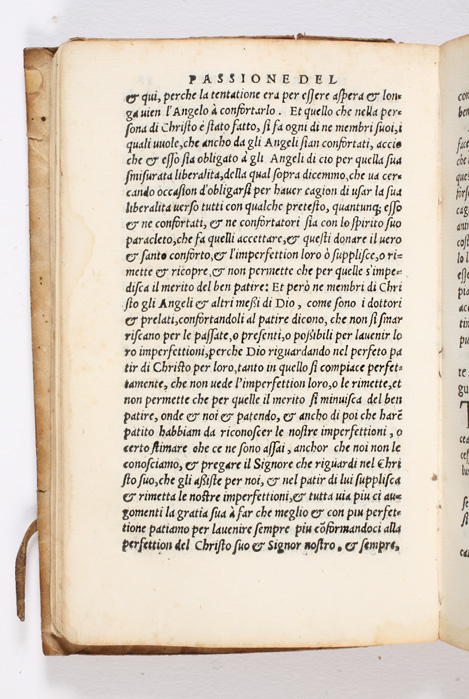 PASSIONE DEL
& qui, perche la tentatione era per essere aspera & lon-
ga vien l'Angelo à confortarlo. Et quello che nella per-
sona di Christo è stato fatto, si fa ogni dì ne membri suoi, i
quali vuole, che ancho da gli Angeli sian confortati, accio
che & esso sia obligato à gli Angeli di cio per quella sua
smisurata liberalita, della qual sopra dicemmo, che va cer-
cando occasion d'obligarsi per haver cagion di usar la sua
liberalita verso tutti con qualche pretesto, quantunq; esso
& ne confortati, & ne confortatori sia con lo spirito suo
paracleto, che fa quelli accettare, & questi donare il vero
& santo conforto, & l'imperfettion loro ò supplisce, o ri-
mette & ricopre, & non permette che per quelle s'impe-
disca il merito del ben patire: Et però ne membri di Chri
sto gli Angeli & altri messi di Dio, come sono i dottori
& prelati, confortandoli al patire dicono, che non si smar
riscano per le passate, o presenti, o possibili per lavenir lo
ro imperfettioni, perche Dio riguardando nel perfeto pa
tir di Christo per loro, tanto in quello si compiace perfet-
tamente, che non vede l'imperfettion loro, o le rimette, et
non permette che per quelle il merito si minuisca del ben
patire, onde & noi & patendo, & ancho di poi che harē
patito habbiam da riconoscer le nostre imperfettioni, o
certo stimare che ce ne sono assai, anchor che noi non le
conosciamo, & pregare il Signore che riguardi nel Chri
sto suo, che gli assiste per noi, & nel patir di lui supplisca
& rimetta le nostre imperfettioni, & tutta via piu ci au-
gomenti la gratia sua à far che meglio & con piu perfet-
tione patiamo per lavenire sempre piu cōformandoci alla
perfettion del Christo suo & Signor nostro. & sempre,